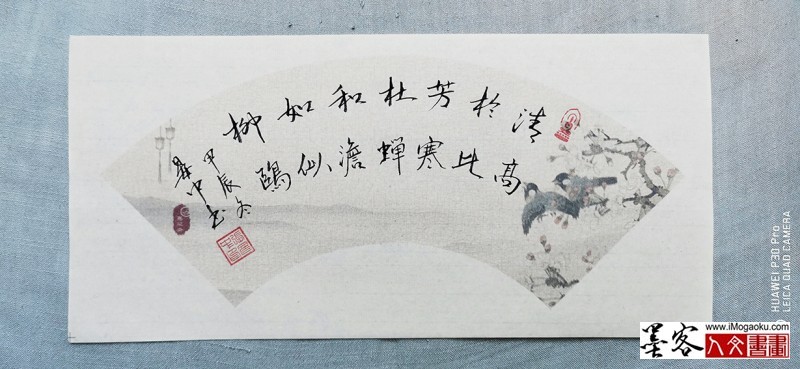 清於芳杜和如柳
高比寒蝉澹似鷗
甲辰冬
中书
HUAWEI P30 Pro
LEICA QUAD CAMERA
墨客
www.iMogaoku.com
人文書畫